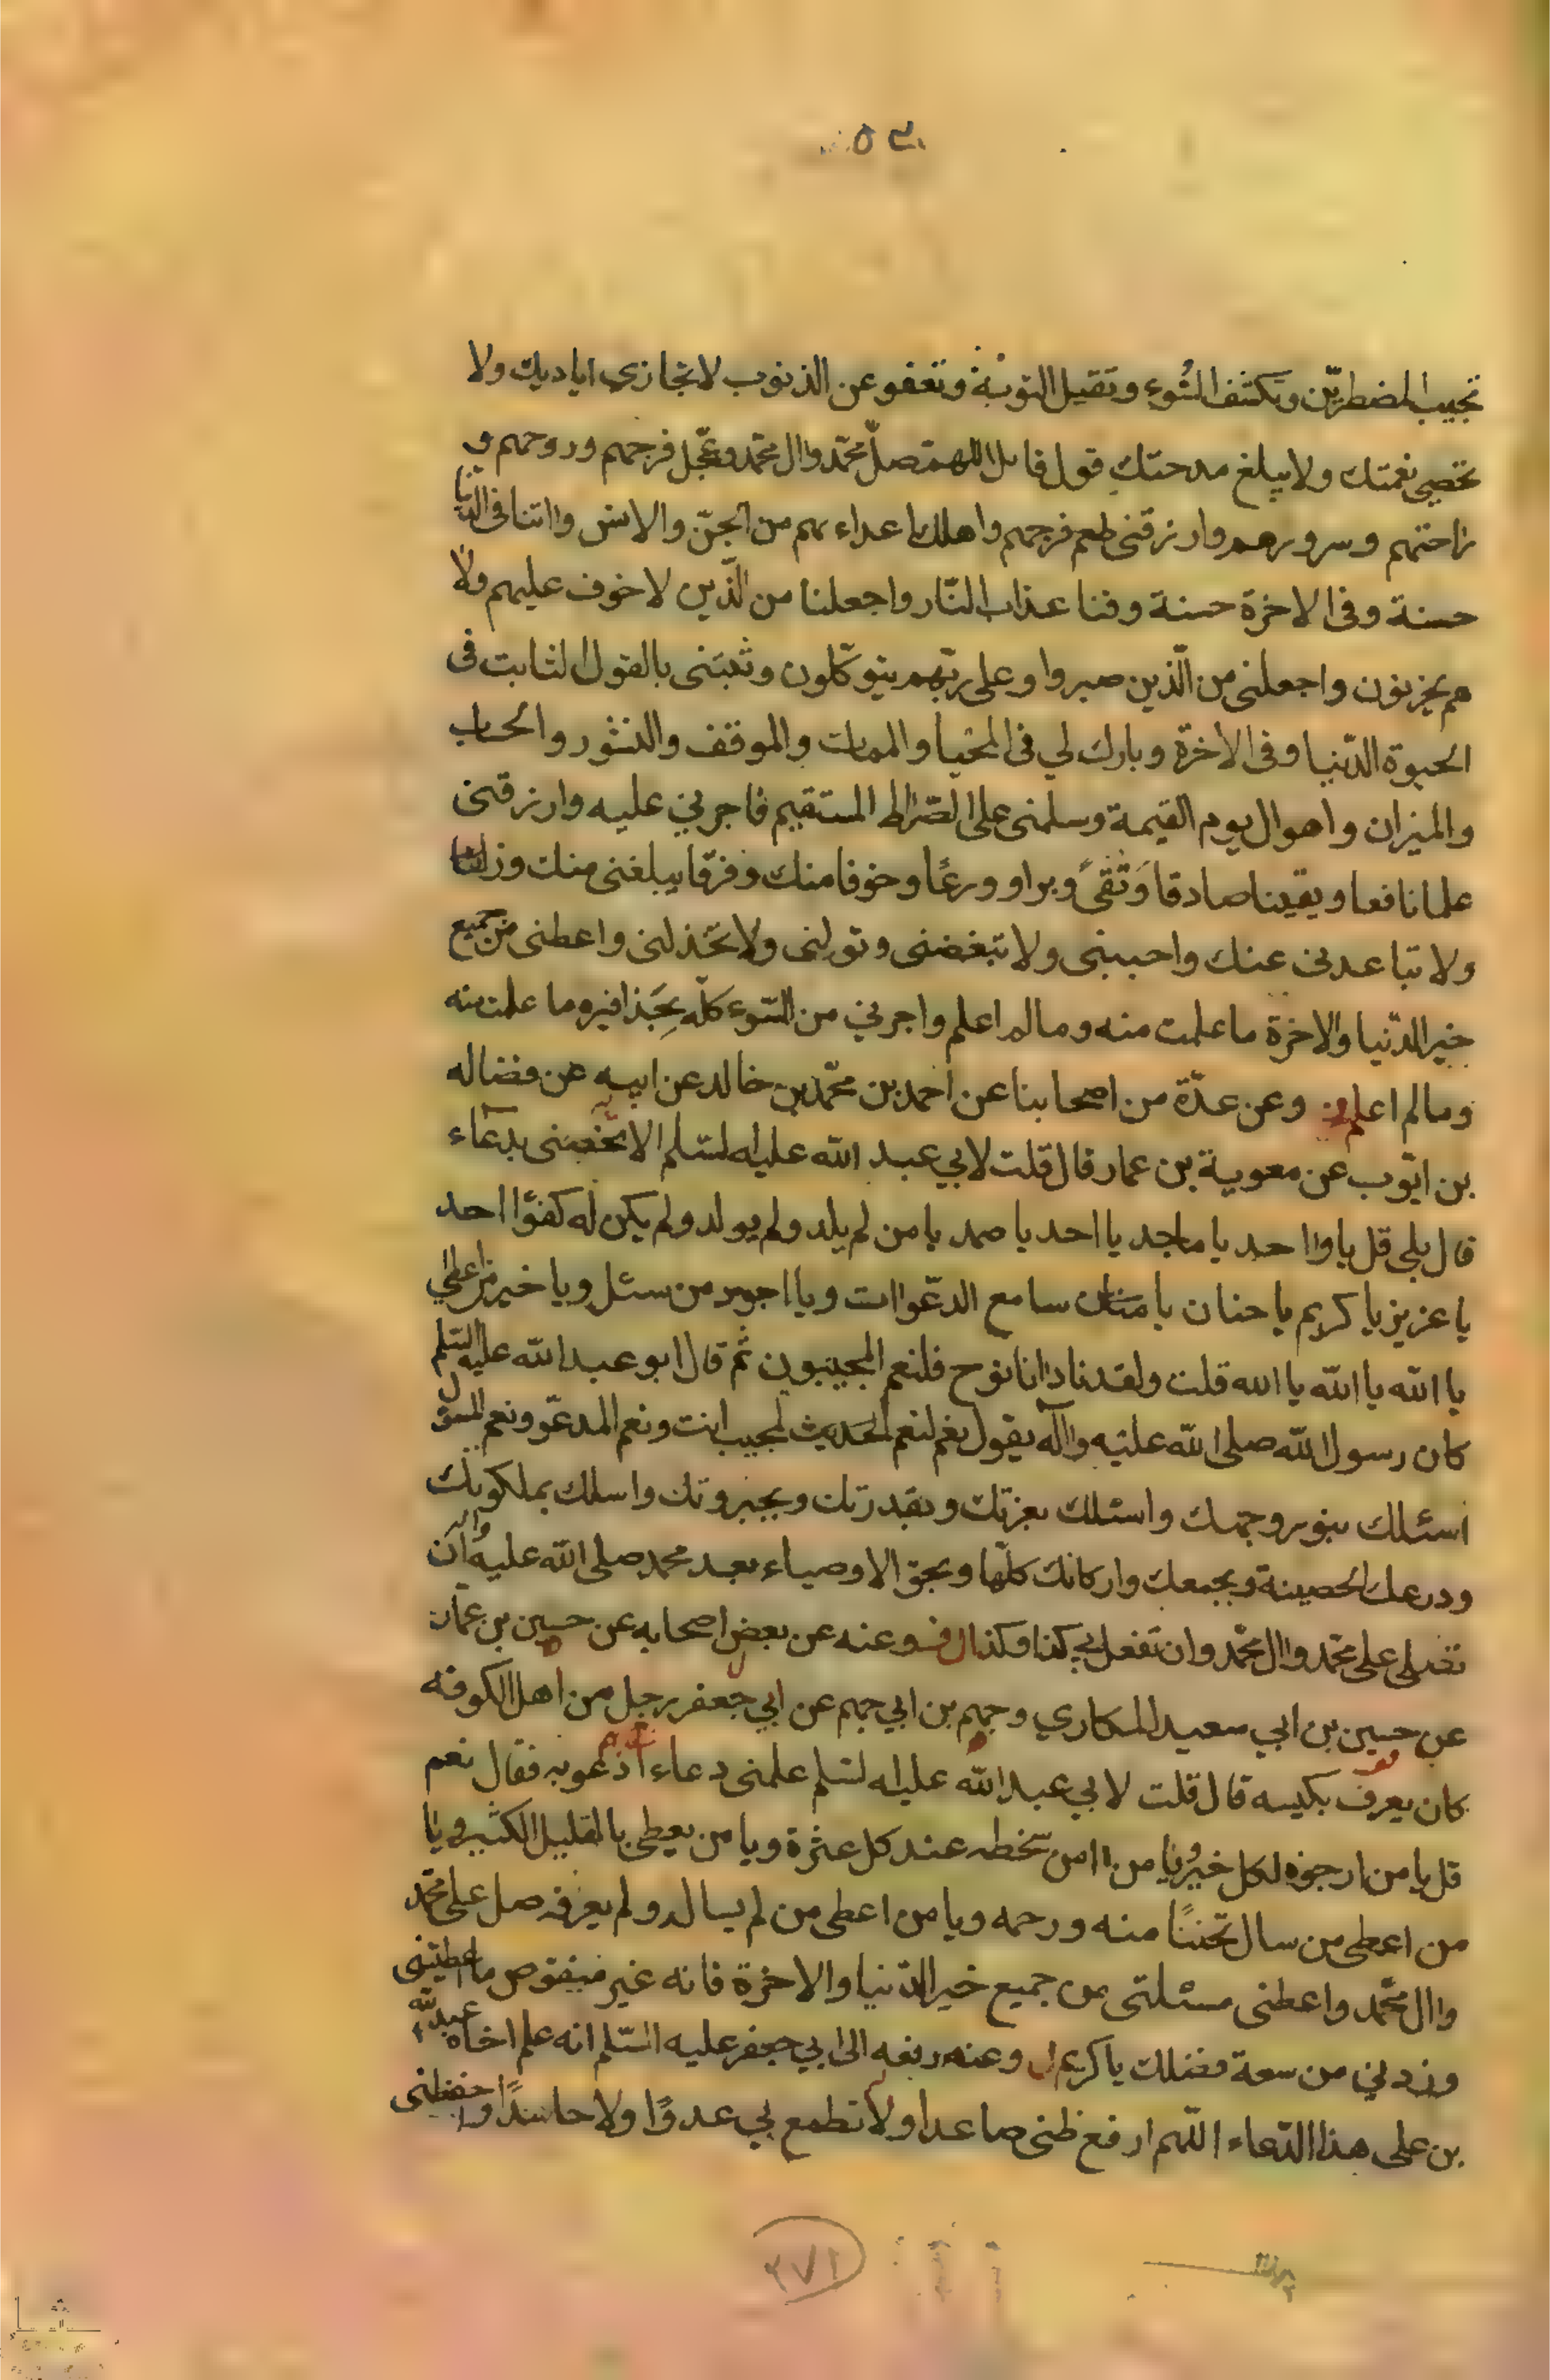 تجيب المضطرين وتكشف السوء وتقبل التوبة وتعفو عن الذنوب لا تجازى اياديك ولا
تحصى نعمتك ولا يبلغ مدحتك قول قائل اللهم صل محمد وال محمد وعجل فرجهم وروحهم و
راحتهم وسرورهم وارزقنى طعم فرجهم واهلك اعداءهم من الجن والانس واتنا فى الدنيا
حسنة وفى الاخرة حسنة وقنا عذاب النار واجعلنا من الذين لا خوف عليهم ولا
هم يحزنون واجعلنى من الذين صبروا وعلى ربهم يتوكلون وثبتنى بالقول الثابت فى
الحيوة الدنيا وفى الاخرة وبارك لي فى المحيا والممات والموقف والنشور والحساب
والميزان واهوال يوم القيمة وسلمنى على الصراط المستقيم فاجرني عليه وارزقنى
علما نافعا ويقينا صادقا وتقى وبرا وورعا وخوفا منك وفرقا يبلغنى منك وزلفا
ولا تباعدنى عنك واحببنى ولا تبغضنى وتولنى ولا تخذلنى واعطنى من جميع
خير الدنيا والاخرة ما علمت منه وما لم اعلم واجرني من السوء كله بحذافيره وما علمت منه
وما لم اعلم وعن عدة من اصحابنا عن احمد بن محمد بن خالد عن ابيه عن فضاله
بن ايوب عن معوية بن عمار قال قلت لابي عبد الله عليه السلم الا تخصنى بدعاء
قال بلى قل يا واحد يا ماجد يا احد يا صمد يا من لم يلد ولم يولد ولم يكن له كفوا احد
يا عزيز يا كريم يا حنان يا منان سامع الدعوات ويا اجود من سئل ويا خير من اعطي
يا الله يا الله يا الله قلت ولقد نادانا نوح فلنعم المجيبون ثم قال ابو عبد الله عليه السلم
كان رسول الله صلى الله عليه واله يقول نعم لنعم المجيب انت ونعم المدعو ونعم المسؤل
اسئلك بنور وجهك واسئلك بعزتك وبقدرتك وبجبروتك واسلك بملكوتك
ودرعك الحصينة وبجمعك واركانك كلها وبحق الاوصياء بعد محمد صلى الله عليه واله ان
تصلى على محمد وال محمد وان تفعل بي كذا وكذا وعنه عن بعض اصحابه عن حسين بن عمار
عن حسين بن ابي سعيد المكاري وجهم بن ابي جهم عن ابي جعفر رجل من اهل الكوفه
كان يعرف بكنيسه قال قلت لابي عبد الله عليه السلم علمنى دعاء ادعو به فقال نعم
قل يا من ارجوه لكل خير ويا من امن سخطه عند كل عثرة ويا من يعطى بالقليل الكثير ويا
من اعطى من سال تحننا منه ورحمه ويا من اعطى من لم يساله ولم يعرفه صل على محمد
وال محمد واعطنى مسئلتى من جميع خير الدنيا والاخرة فانه غير منقوص ما اعطيتنى
وزدني من سعة فضلك يا كريم وعنه رفعه الى ابي جعفر عليه السلم انه علم اخاه عبد الله
بن على هذا الدعاء اللهم ارفع ظنى صاعدا ولا تطمع بي عدوا ولا حاسدا واحفظنى
٢٧١